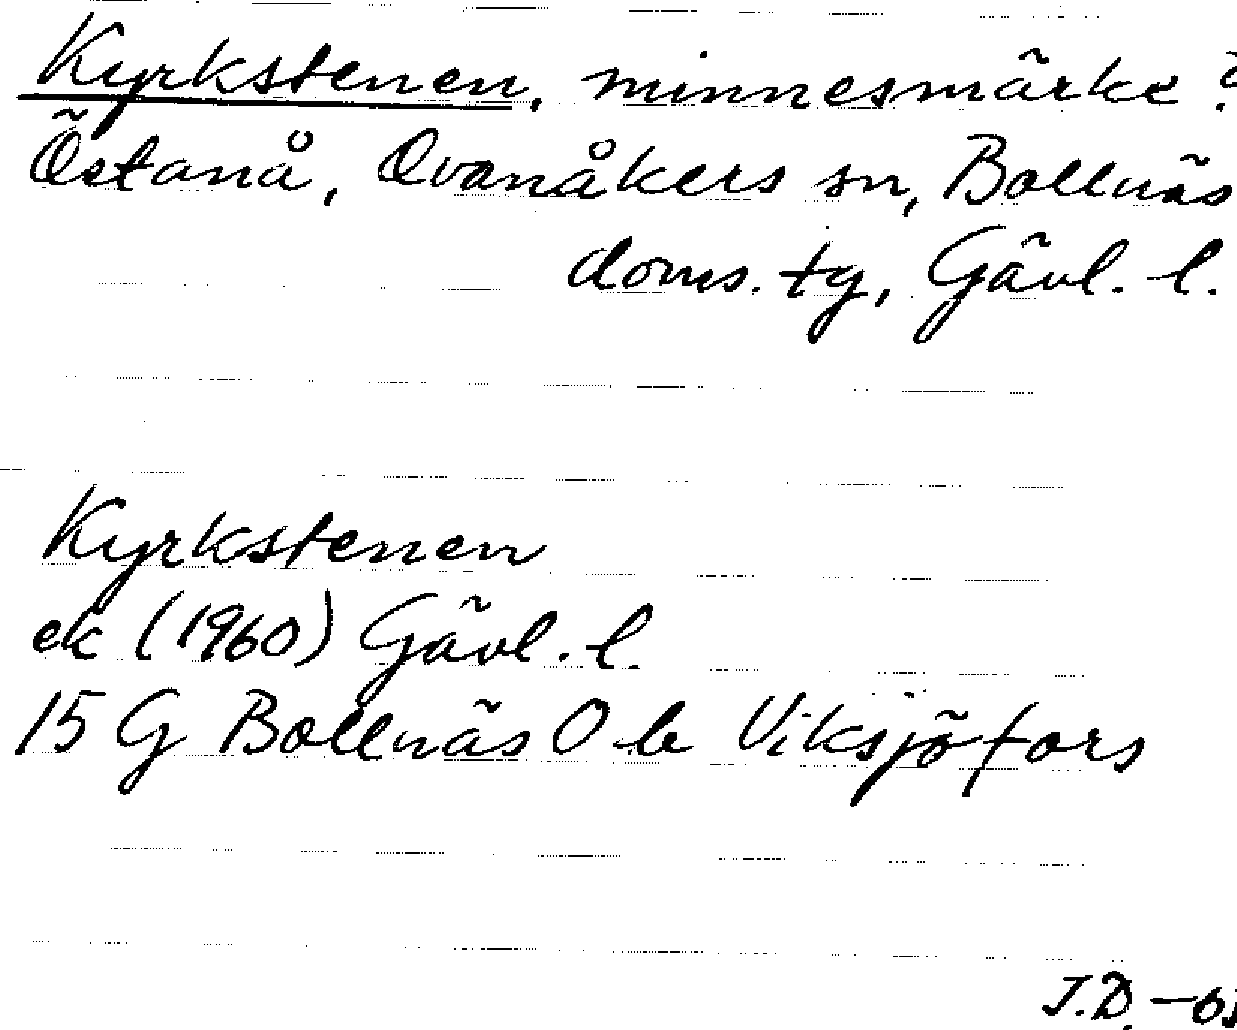 Kyrkstenen, minnesmärke?
Östanå, Ovanåkers sn, Bollnäs
doms. tg, Gävl. l.
Kyrkstenen
ek (1960) Gävl. l.
15 G Bollnäs O b Viksjöfors
J.D.